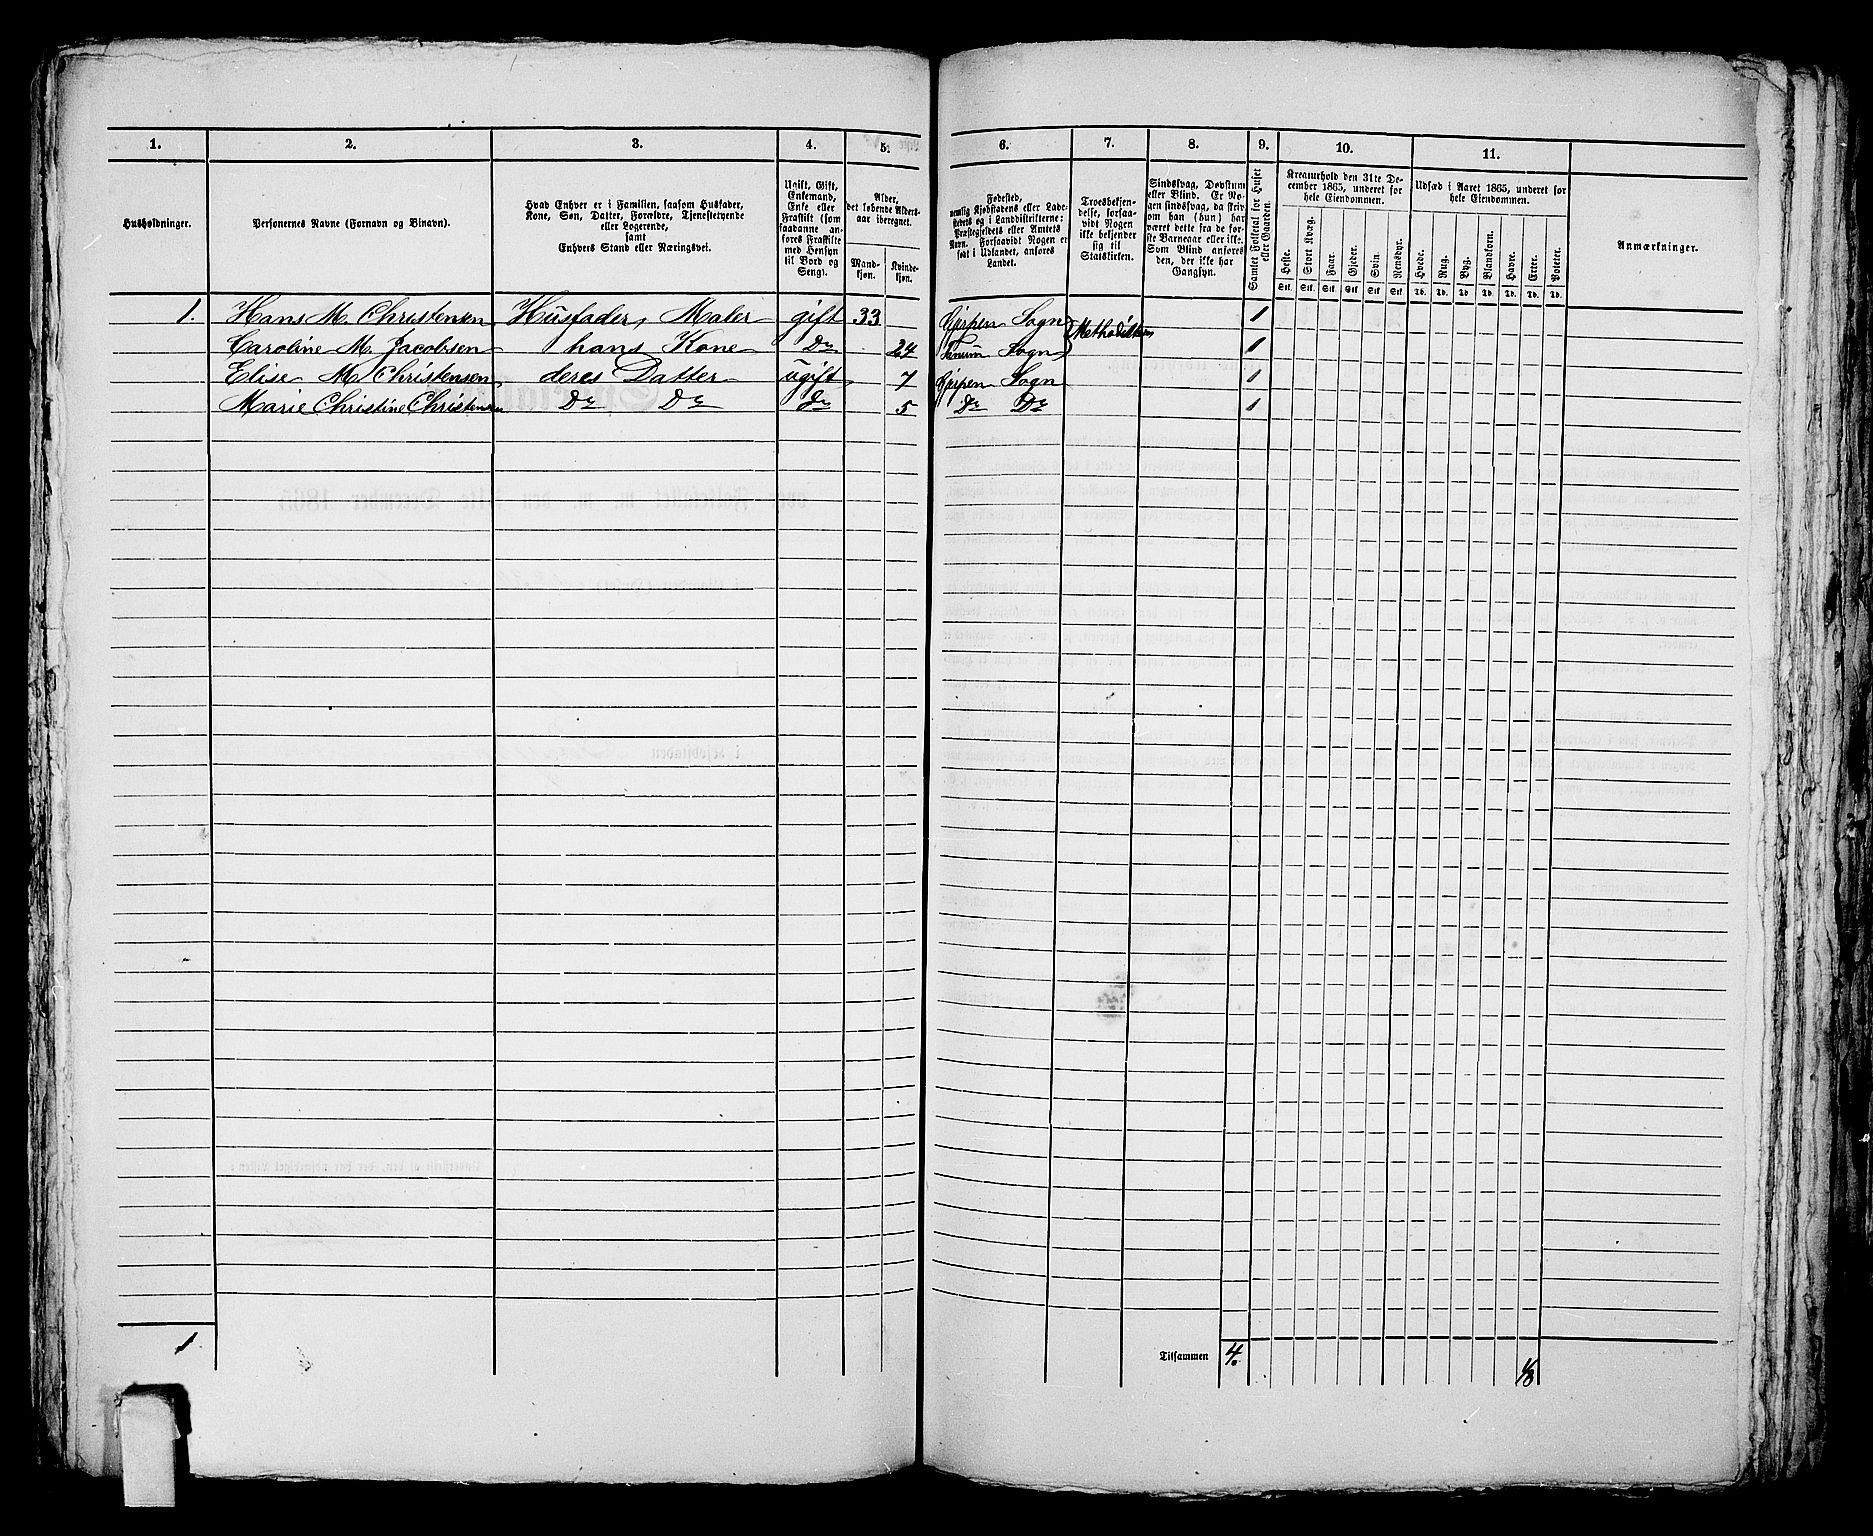 1. 2. 3. 4. 5. 6. 7. 8. 9. 10. 11.
Husholdninger.
Personernes Navne (Fornavn og Binavn).
Hvad Enhver er i Familien, saasom Husfader,
Kone, Søn, Datter, Forældre, Tjenestetyende
eller Logerende,
samt
Enhvers Stand eller Næringsvei.
Ugift, Gift,
Enkemand,
Enke eller
Fraskilt (som
saadanne an-
føres Fraskilte
med Hensyn
til Bord og
Seng).
Alder,
det løbende Alders-
aar iberegnet.
Mand-
kjøn.
Kvinde-
kjøn.
Fødested,
nemlig Kjøbstadens eller Lade-
stedets og i Landdistrikterne:
Præstegjeldets eller Amtets
Navn. Forsaavidt Nogen er
født i Udlandet, anføres
Landet.
Troesbekjen-
delse, forsaa-
vidt Nogen
ikke bekjender
sig til
Statskirken.
Sindssvag, Døvstum
eller Blind. Er No-
gen sindssvag, da skriv
om han (hun) har
været dette fra de før-
ste Barneaar eller ikke.
Som Blind anføres
den, der ikke har
Gangsyn.
Samlet Folketal for Huset
eller Gaarden.
Kreaturhold den 31te De-
cember 1865, underet for
hele Eiendommen.
Heste. Stort Kvæg. Faar. Gjeder. Svin. Rensdyr.
Stk. Stk. Stk. Stk. Stk. Stk.
Udsæd i Aaret 1865, underet for
hele Eiendommen.
Hvede. Rug. Byg. Blandkorn. Havre. Erter. Poteter.
Td. Td. Td. Td. Td. Td. Td.
Anmærkninger.
1. Hans M. Christensen Husfader, Maler gift 33 Gjerpen Sogn Methodisten 1
Caroline M. Jacobsen hans Kone Do 24 Sogn 1
Elise M. Christensen deres Datter ugift 7 Gjerpen Sogn 1
Marie Christine Christensen Do Do Do 5 Do Do 1
1
Tilsammen 4.